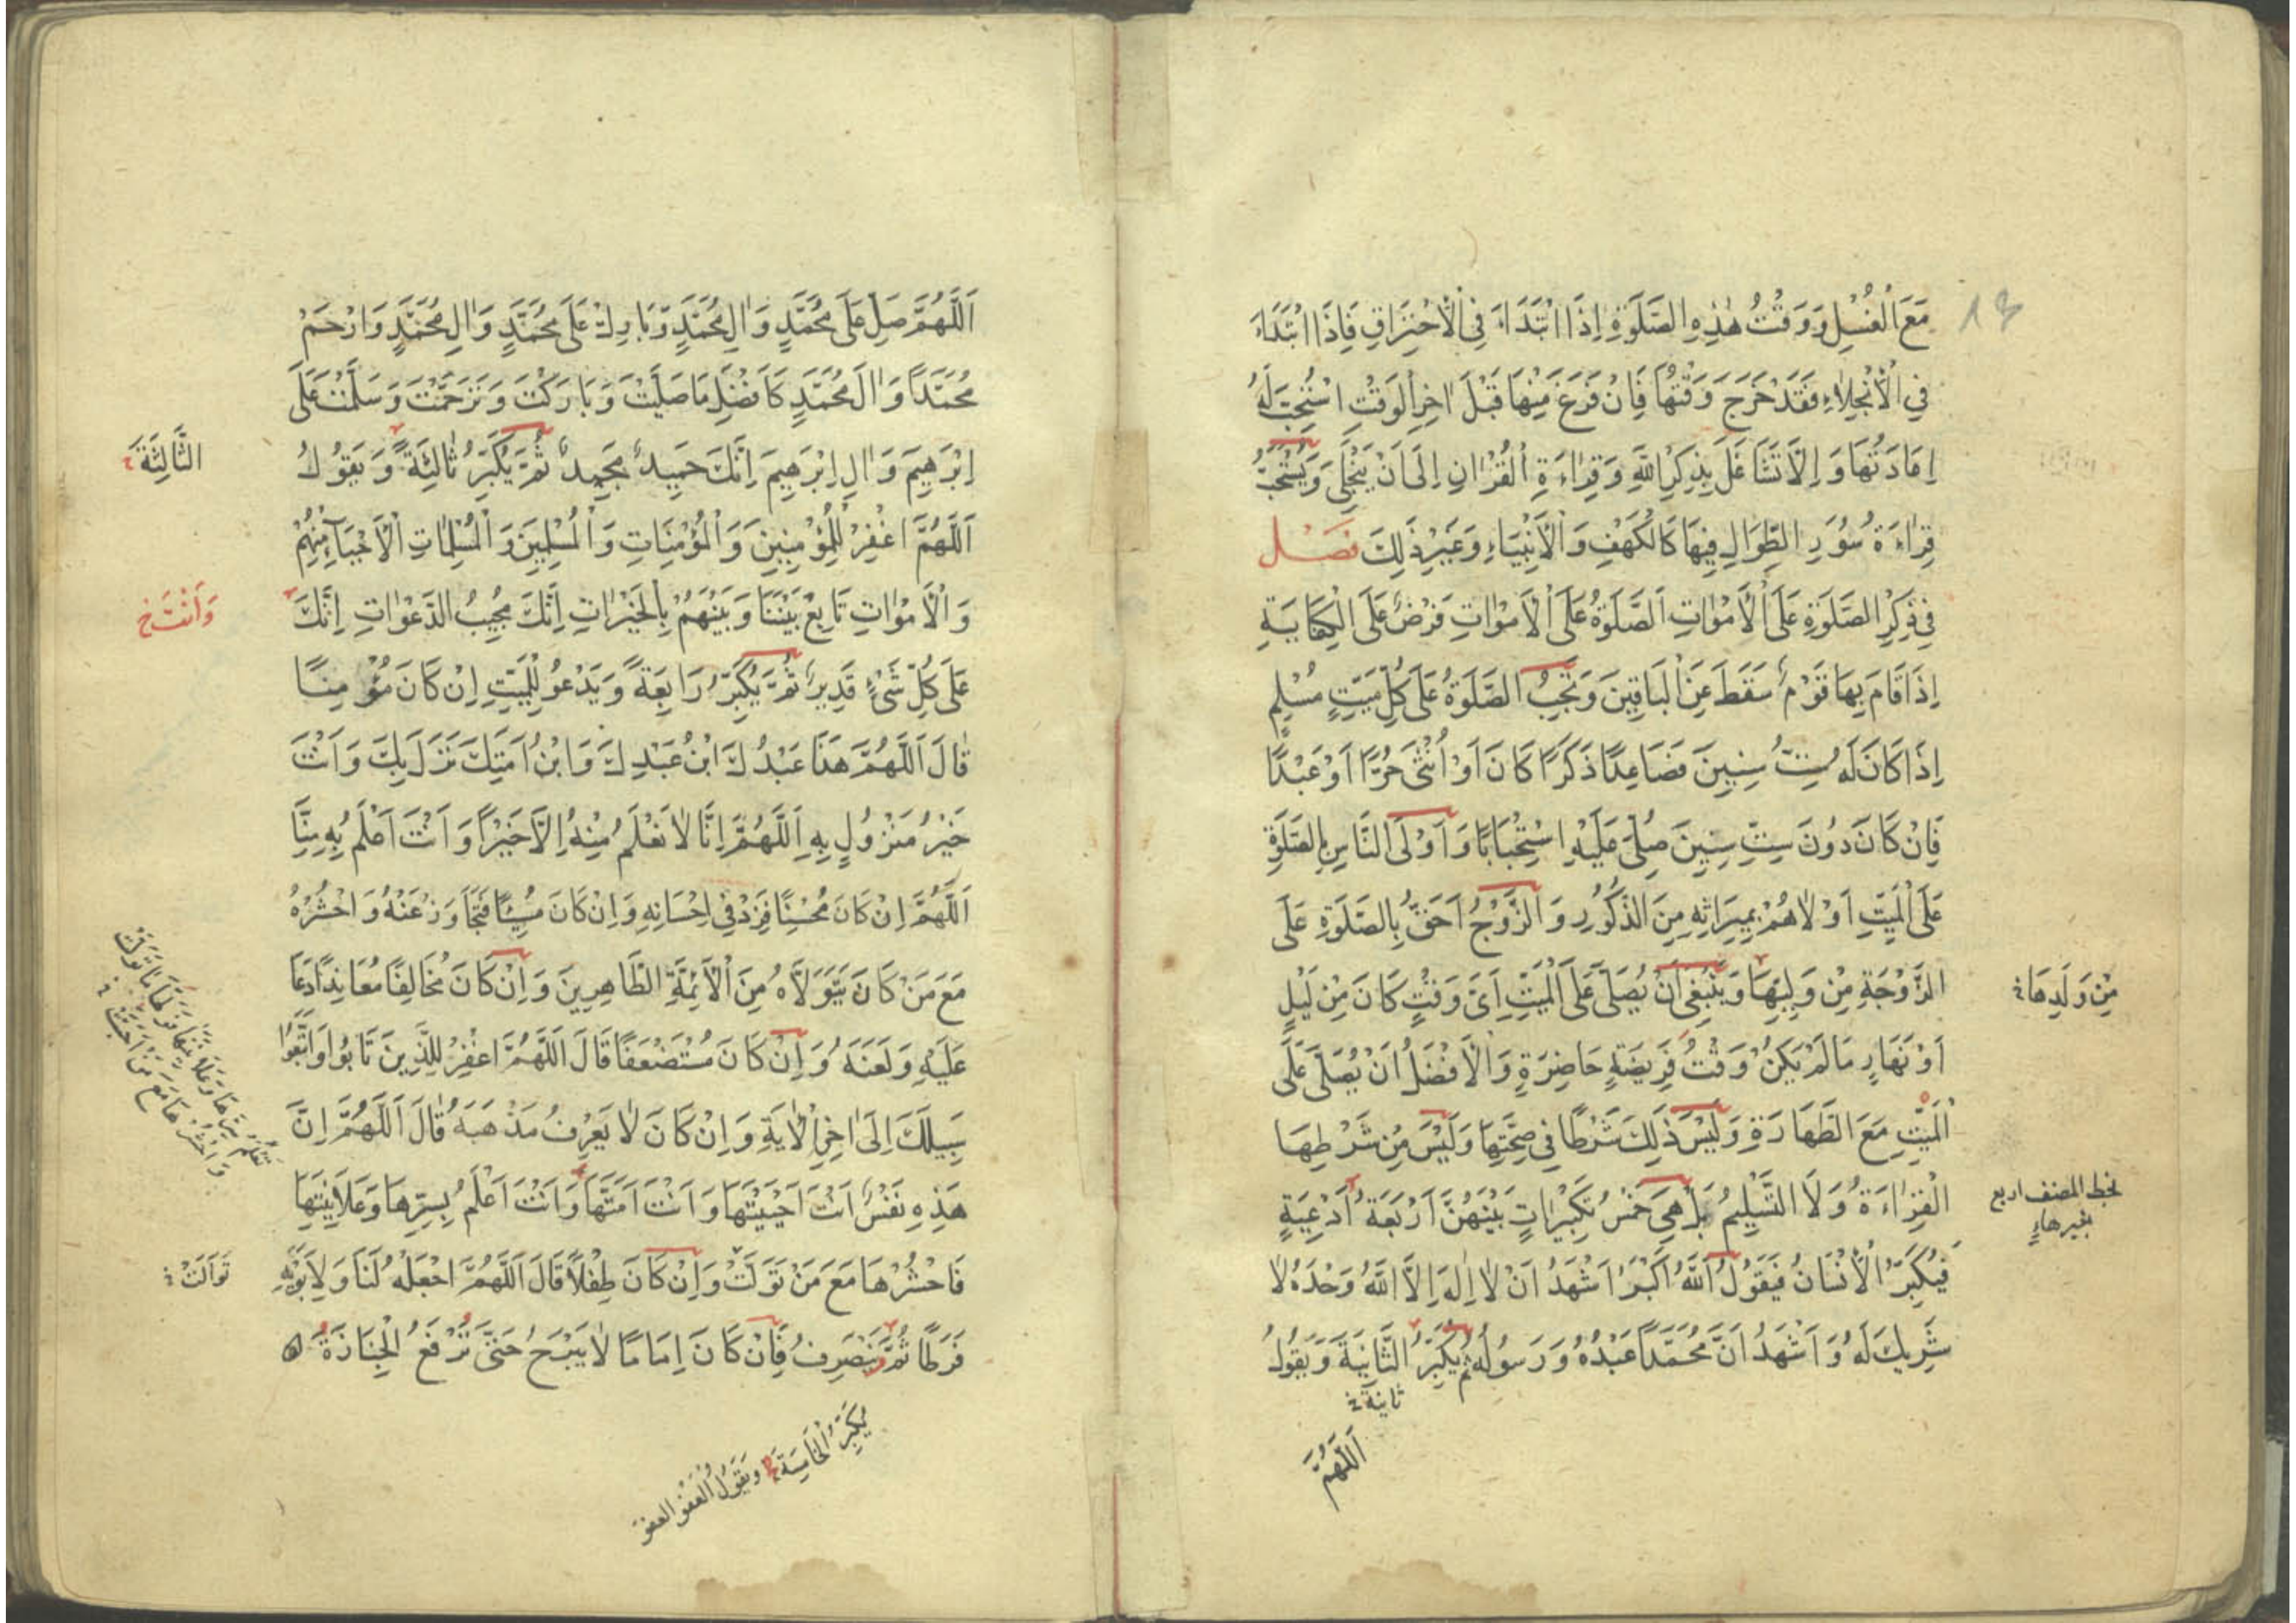 مَعَ الْغُسْلِ وَ وَقْتُ هٰذِهِ الصَّلَوةِ اِذَا ابْتَدَاءَ فِي الْاِحْتِرَاقِ فَاِذَا ابْتَدَاءَ
فِي الْاِنْجِلَاءِ فَقَدْ خَرَجَ وَقْتُهَا فَاِنْ فَرَغَ مِنْهَا قَبْلَ اٰخِرِ الْوَقْتِ اسْتُحِبَّ لَهُ
اِعَادَتُهَا وَ اِلَّا تَشَاغَلَ بِذِكْرِ اللّٰهِ وَ قِرَاءَةِ الْقُرْاٰنِ اِلَى اَنْ يَنْجَلِيَ وَ يُسْتَحَبُّ
قِرَاءَةُ سُوَرِ الطِّوَالِ فِيهَا كَالْكَهْفِ وَ الْاَنْبِيَاءِ وَ غَيْرِ ذٰلِكَ فَصْل
فِي ذِكْرِ الصَّلَوةِ عَلَى الْاَمْوَاتِ اَلصَّلَوةُ عَلَى الْاَمْوَاتِ فَرْضٌ عَلَى الْكِفَايَةِ
اِذَا قَامَ بِهَا قَوْمٌ سَقَطَ عَنِ الْبَاقِينَ وَ تَجِبُ الصَّلَوةُ عَلَى كُلِّ مَيِّتٍ مُسْلِمٍ
اِذَا كَانَ لَهُ سِتُّ سِنِينَ فَصَاعِدًا ذَكَرًا كَانَ اَوْ اُنْثَى حُرًّا اَوْ عَبْدًا
فَاِنْ كَانَ دُونَ سِتِّ سِنِينَ صُلِّيَ عَلَيْهِ اسْتِحْبَابًا وَ اَوْلَى النَّاسِ بِالصَّلَوةِ
عَلَى الْمَيِّتِ اَوْلَاهُمْ بِمِيرَاثِهِ مِنَ الذُّكُورِ وَ الزَّوْجُ اَحَقُّ بِالصَّلَوةِ عَلَى
الزَّوْجَةِ مِنْ وَلِيِّهَا وَ يَنْبَغِي اَنْ يُصَلَّى عَلَى الْمَيِّتِ اَيَّ وَقْتٍ كَانَ مِنْ لَيْلٍ
مِنْ وَلَدِهَا
اَوْ نَهَارٍ مَا لَمْ يَكُنْ وَقْتُ فَرِيضَةٍ حَاضِرَةٍ وَ الْاَفْضَلُ اَنْ يُصَلَّى عَلَى
الْمَيِّتِ مَعَ الطَّهَارَةِ وَ لَيْسَ ذٰلِكَ شَرْطًا فِي صِحَّتِهَا وَ لَيْسَ مِنْ شَرْطِهَا
الْقِرَاءَةُ وَ لَا التَّسْلِيمُ بَلْ هِيَ خَمْسُ تَكْبِيرَاتٍ بَيْنَهُنَّ اَرْبَعَةُ اَدْعِيَةٍ
بخط المصنف اربع
بغيرهاء
فَيُكَبِّرُ الْاِنْسَانُ فَيَقُولُ اَللّٰهُ اَكْبَرُ اَشْهَدُ اَنْ لَا اِلٰهَ اِلَّا اللّٰهُ وَحْدَهُ لَا
شَرِيكَ لَهُ وَ اَشْهَدُ اَنَّ مُحَمَّدًا عَبْدُهُ وَ رَسُولُهُ ثُمَّ يُكَبِّرُ الثَّانِيَةَ وَ يَقُولُ
ثانية
اَللّٰهُمَّ
اَللّٰهُمَّ صَلِّ عَلَى مُحَمَّدٍ وَ اٰلِ مُحَمَّدٍ وَ بَارِكْ عَلَى مُحَمَّدٍ وَ اٰلِ مُحَمَّدٍ وَ ارْحَمْ
مُحَمَّدًا وَ اٰلَ مُحَمَّدٍ كَاَفْضَلِ مَا صَلَّيْتَ وَ بَارَكْتَ وَ تَرَحَّمْتَ وَ سَلَّمْتَ عَلَى
اِبْرَهِيمَ وَ اٰلِ اِبْرَهِيمَ اِنَّكَ حَمِيدٌ مَجِيدٌ ثُمَّ يُكَبِّرُ ثَالِثَةً وَ يَقُولُ
الثَّالِثَةَ
اَللّٰهُمَّ اغْفِرْ لِلْمُؤْمِنِينَ وَ الْمُؤْمِنَاتِ وَ الْمُسْلِمِينَ وَ الْمُسْلِمَاتِ الْاَحْيَاءِ مِنْهُمْ
وَ الْاَمْوَاتِ تَابِعْ بَيْنَنَا وَ بَيْنَهُمْ بِالْخَيْرَاتِ اِنَّكَ مُجِيبُ الدَّعَوَاتِ اِنَّكَ
وَاَنْتَ خ
عَلَى كُلِّ شَيْءٍ قَدِيرٌ ثُمَّ يُكَبِّرُ رَابِعَةً وَ يَدْعُو لِلْمَيِّتِ اِنْ كَانَ مُؤْمِنًا
قَالَ اَللّٰهُمَّ هَذَا عَبْدُكَ ابْنُ عَبْدِكَ وَ ابْنُ اَمَتِكَ نَزَلَ بِكَ وَ اَنْتَ
خَيْرُ مَنْزُولٍ بِهِ اَللّٰهُمَّ اِنَّا لَا نَعْلَمُ مِنْهُ اِلَّا خَيْرًا وَ اَنْتَ اَعْلَمُ بِهِ مِنَّا
اَللّٰهُمَّ اِنْ كَانَ مُحْسِنًا فَزِدْ فِي اِحْسَانِهِ وَ اِنْ كَانَ مُسِيئًا فَتَجَاوَزْ عَنْهُ وَ احْشُرْهُ
مَعَ مَنْ كَانَ يَتَوَلَّاهُ مِنَ الْاَئِمَّةِ الطَّاهِرِينَ وَ اِنْ كَانَ مُخَالِفًا مُعَانِدًا دَعَا
عَلَيْهِ وَ لَعَنَهُ وَ اِنْ كَانَ مُسْتَضْعَفًا قَالَ اَللّٰهُمَّ اغْفِرْ لِلَّذِينَ تَابُوا وَ اتَّبَعُوا
سَبِيلَكَ اِلَى اٰخِرِ الْاٰيَةِ وَ اِنْ كَانَ لَا يَعْرِفُ مَذْهَبَهُ قَالَ اَللّٰهُمَّ اِنَّ
هَذِهِ نَفْسٌ اَنْتَ اَحْيَيْتَهَا وَ اَنْتَ اَمَتَّهَا وَ اَنْتَ اَعْلَمُ بِسِرِّهَا وَ عَلَانِيَتِهَا
تَعْلَمُ سِرَّهَا وَ عَلَانِيَتَهَا فَوَلِّهَا مَا تَوَلَّتْ
وَ احْشُرْهَا مَعَ مَنْ اَحَبَّتْ
فَاحْشُرْهَا مَعَ مَنْ تَوَلَّتْ وَ اِنْ كَانَ طِفْلًا قَالَ اَللّٰهُمَّ اجْعَلْهُ لَنَا وَ لِاَبَوَيْهِ
تَوَالَتْ
فَرَطًا ثُمَّ يَنْصَرِفُ فَاِنْ كَانَ اِمَامًا لَا يَبْرَحُ حَتَّى تُرْفَعَ الْجِنَازَةُ
يُكَبِّرُ الْخَامِسَةَ وَ يَقُولُ الْعَفْوَ العفو